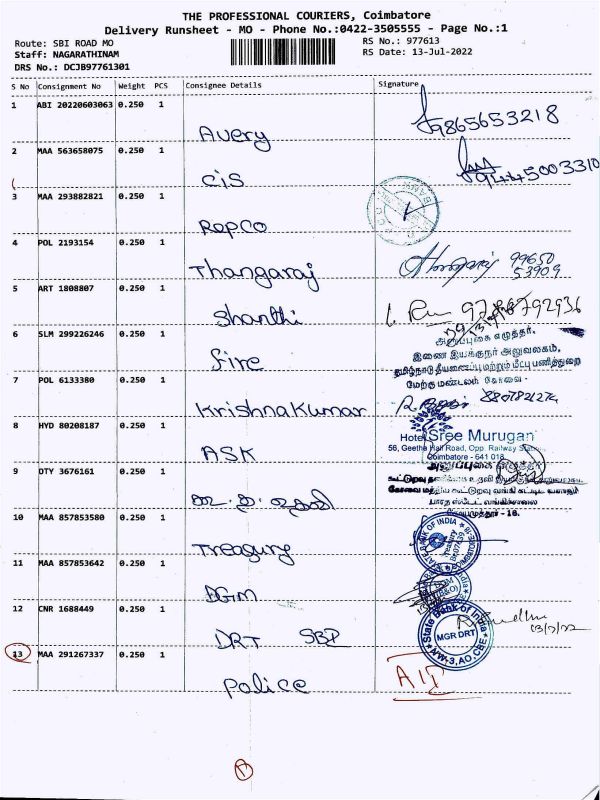 THE PROFESSIONAL COURIERS, Coimbatore
Delivery Runsheet - MO - Phone No.:0422-3505555 - Page No.:1
Route: SBI ROAD MO
RS No.: 977613
Staff: NAGARATHINAM
RS Date: 13-Jul-2022
DRS No.: DCJB97761301
S No Consignment No Weight PCS Consignee Details Signature
1 ABI 20220603063 0.250 1
Avery
9865653218
2 MAA 563658075 0.250 1
CIS
9445003310
3 MAA 293882821 0.250 1
Repco
4 POL 2193154 0.250 1
Thangaraj
99650
53909
5 ART 1808807 0.250 1
Shanthi
6 SLM 299226246 0.250 1
Fire
அனுப்புகை எழுத்தர்,
இணை இயக்குநர் அலுவலகம்,
தமிழ்நாடு தீயணைப்பு மற்றும் மீட்பு பணித்துறை
மேற்கு மண்டலம் கோவை
7 POL 6133380 0.250 1
Krishnakumar
8 HYD 80208187 0.250 1
ASK
Hotel Sree Murugan
56, Geetha Hall Road, Opp. Railway Station,
Coimbatore - 641 018.
9 DTY 3676161 0.250 1
10 MAA 857853580 0.250 1
Treasury
STATE BANK OF INDIA
Treasury
COIMBATORE-18
11 MAA 857853642 0.250 1
DGM
12 CNR 1688449 0.250 1
DRT SBI
State Bank of India
MGR DRT
NW-3, AO, CBE
13/7/22
13 MAA 291267337 0.250 1
Police